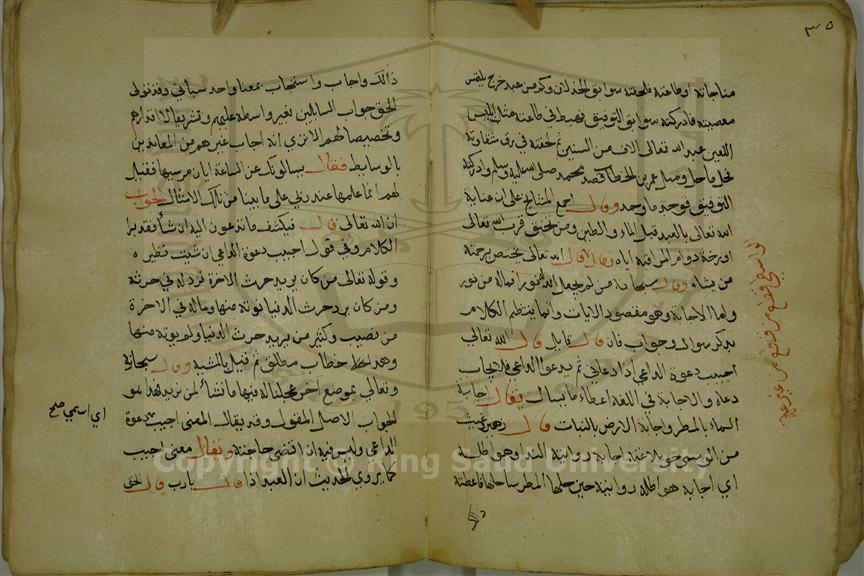 ٣٥
مناجاته اوطاعته فلحقته سوابق الخذلان وكم من عبد خرج يلتمس
معصيته فادركته سوابق التوفيق فصيطر في طاعته مثل ابليس
اللعين عبد الله تعالى الاف من السنين ثم لحقته في رق شقاوته
فحل ما حل وصل عمر بن الخطاب قصد محمد صلى الله عليه وسلم وادركته
التوفيق فوحد ما وحد وقال اجمع المشايخ على ان عناية
الله تعالى بالعبد قبل الماء والطين ومن تحقق قرب الله تعالى
اورثه دوام المراقبة اياه وقال قال الله تعالى يختص برحمته
من يشاء وقال سبحانه من لم يجعل الله له نورا فماله من نور
واما الاجابة وهو مقصود الايات وانما ينتظم الكلام
بذكر سوال وجواب فان قال قايل قال الله تعالى
اجيب دعوة الداعي اذا دعاني ثم يدعوا الداعي فلا يجاب
دعاه والاجابة في اللغة اعطاء ما يسال فيقال اجابة
السماء بالمطر واجابة الارض بالنبات قال زهير وغيث
من الوسمي حو تلاعه اجابة روابيه الندا وهو اطله
اي اجابه هواطله روابيه حين حلها المطر ساحلها فاعطته
ذلك
ذالك واجاب واستجاب بمعنا واحد سياتي وقد تولى
الحق جواب السايلين بغير واسطة عليهم وتشريفا لاقدارهم
وتخصيصا لهم الا ترى انه اجاب غيرهم من المعاندين
بالوسايط فقال يسالونك عن الساعة ايان مرسيها فقيل
لهم انما علمها عند ربي على ما بينا من تلك الامثال الجواب
ان الله تعالى قال فيكشف ما تدعون اليه ان شاء تقدير
الكلام وفي قول اجيب دعوة الداعي ان شيت نظيره
وقوله تعالى من كان يريد حرث الاخرة نزد له في حرثه
ومن كان يرد حرث الدنيا نوته منها وماله في الاخرة
من نصيب وكثير من يريد حرث الدنيا ولم يوته منها
وهذا خطاب مطلق ثم قيل بالمشية وقال سبحانه
وتعالى بموضع اخر عجلنا له فيها ما نشاء لمن نريد هذا هو
الجواب الاصل المقول وقد يقال المعنى اجيب دعوة
الداعي وليس فيه ان اقضى حاجته ويقال معنى اجيب
كما يروى في الحديث ان العبد اذا قال يا رب قال الحق
اي اسمي صح
Copyright © King Saud University
1957